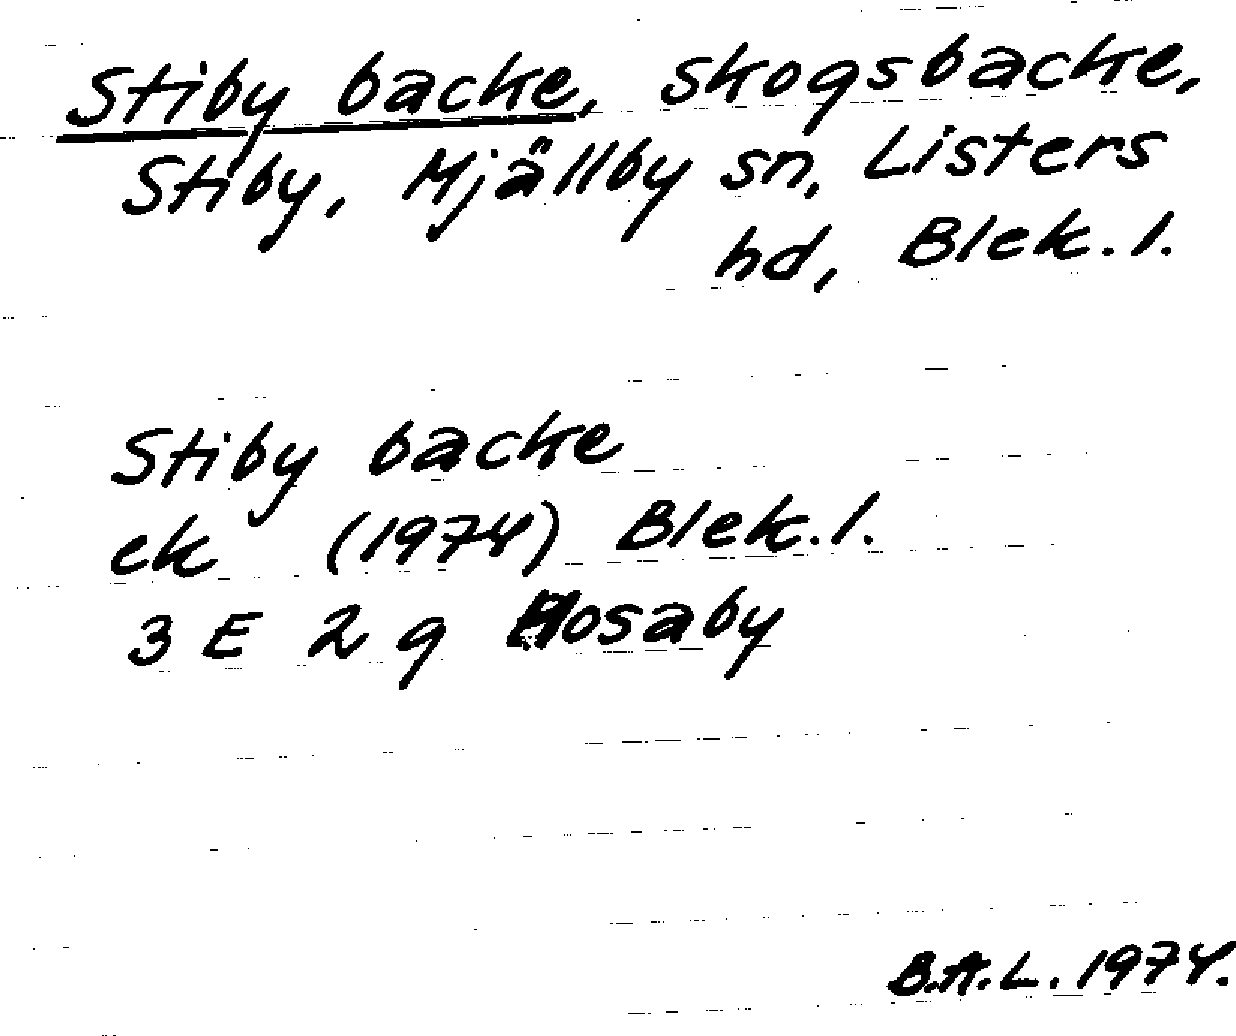 Stiby backe, skogsbacke,
Stiby, Mjällby sn, Listers
hd, Blek. l.
Stiby backe
ek (1974) Blek. l.
3 E 2 g Hosaby
B.A.L. 1974.